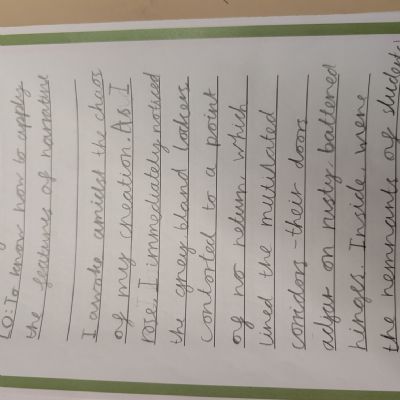 LO: To know how to apply
the features of narrative
I awoke amidst the chaos
of my creation. As I
rose, I immediately noticed
the grey bland lockers
contorted to a point
of no return which
lined the mutilated
corridors - their doors
ajar on rusty battened
hinges. Inside were
the remnants of students'